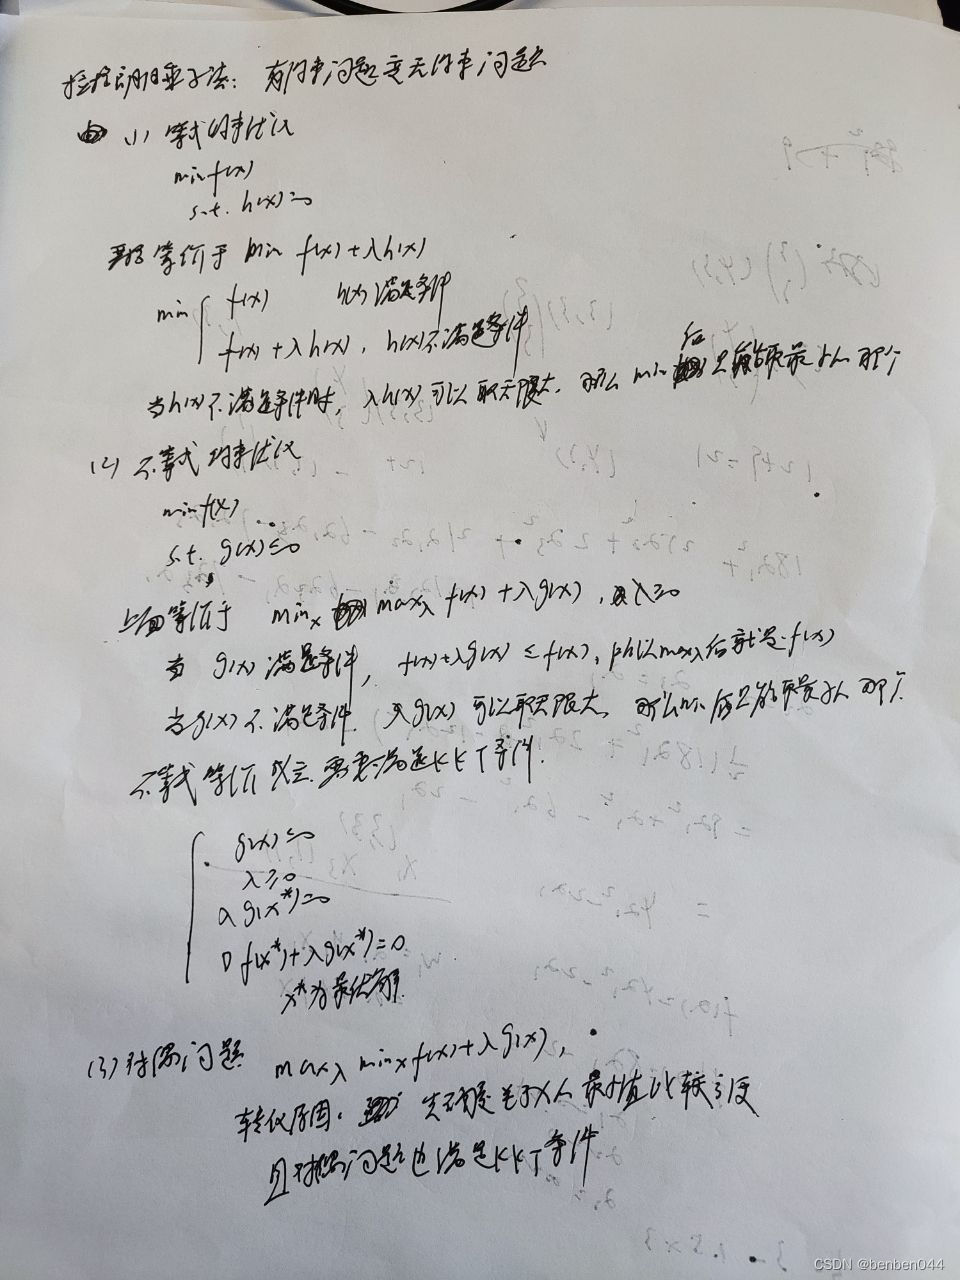 拉格朗日乘子法：有约束问题变无约束问题
(1) 等式约束优化
min f(x)
s.t. h(x)=0
等价于 min f(x)+λh(x)
min { f(x) h(x)满足条件
f(x)+λh(x), h(x)不满足条件
当h(x)不满足条件时, λh(x)可以取无限大, 那么 min 后 只能取最小的那个
(2) 不等式约束优化
min f(x)
s.t. g(x)≤0
上面等价于 min_x max_λ f(x)+λg(x), λ≥0
当 g(x) 满足条件, f(x)+λg(x) ≤ f(x), 所以max_λ后就是f(x)
当g(x)不满足条件, λg(x) 可以取无限大, 那么min后只能取最小的那个
不等式等价成立需要满足KKT条件.
g(x)≤0
λ≥0
λg(x*)=0
∇f(x*)+λg(x*)=0
x*为最优解
(3) 对偶问题 max_λ min_x f(x)+λg(x),
转化原因: 先求 关于x的最小值比较方便
且对偶问题也满足KKT条件
CSDN @benben044